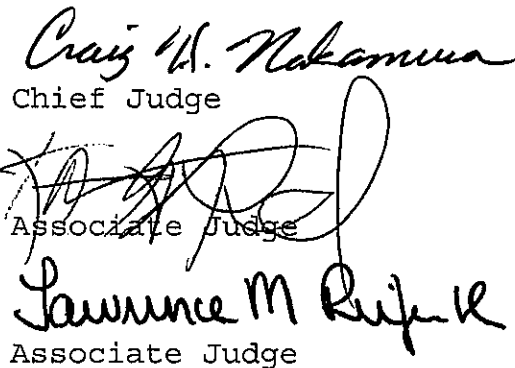 Craig H. Nakamura
Chief Judge
Associate Judge
Lawrence M
Associate Judge